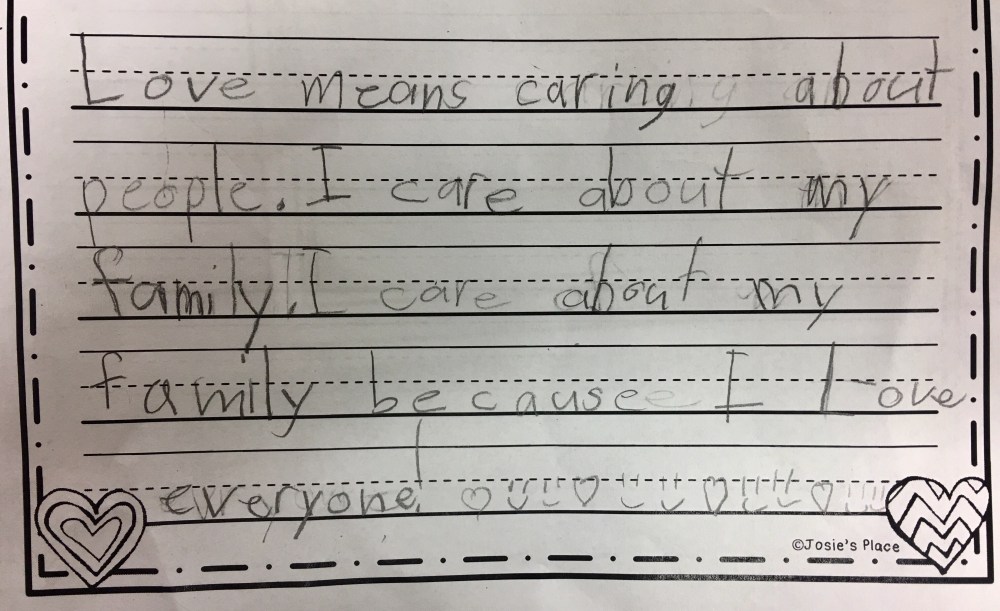 Love means caring about
people. I care about my
family. I care about my
family because I Love
everyone!
©Josie's Place